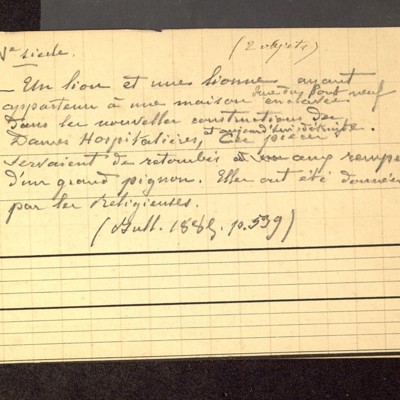 Ve siècle.
(2 objets)
— Un lion et une lionne ayant
rue du Pont neuf
appartenu à une maison enclavée
dans les nouvelles constructions des
et aujourd'hui démolie.
Dames Hospitalières, Ces pièces
servaient de retombés aux rampes
d'un grand pignon. Elles ont été données
par les Religieuses.
(Bull. 188 p. 539)